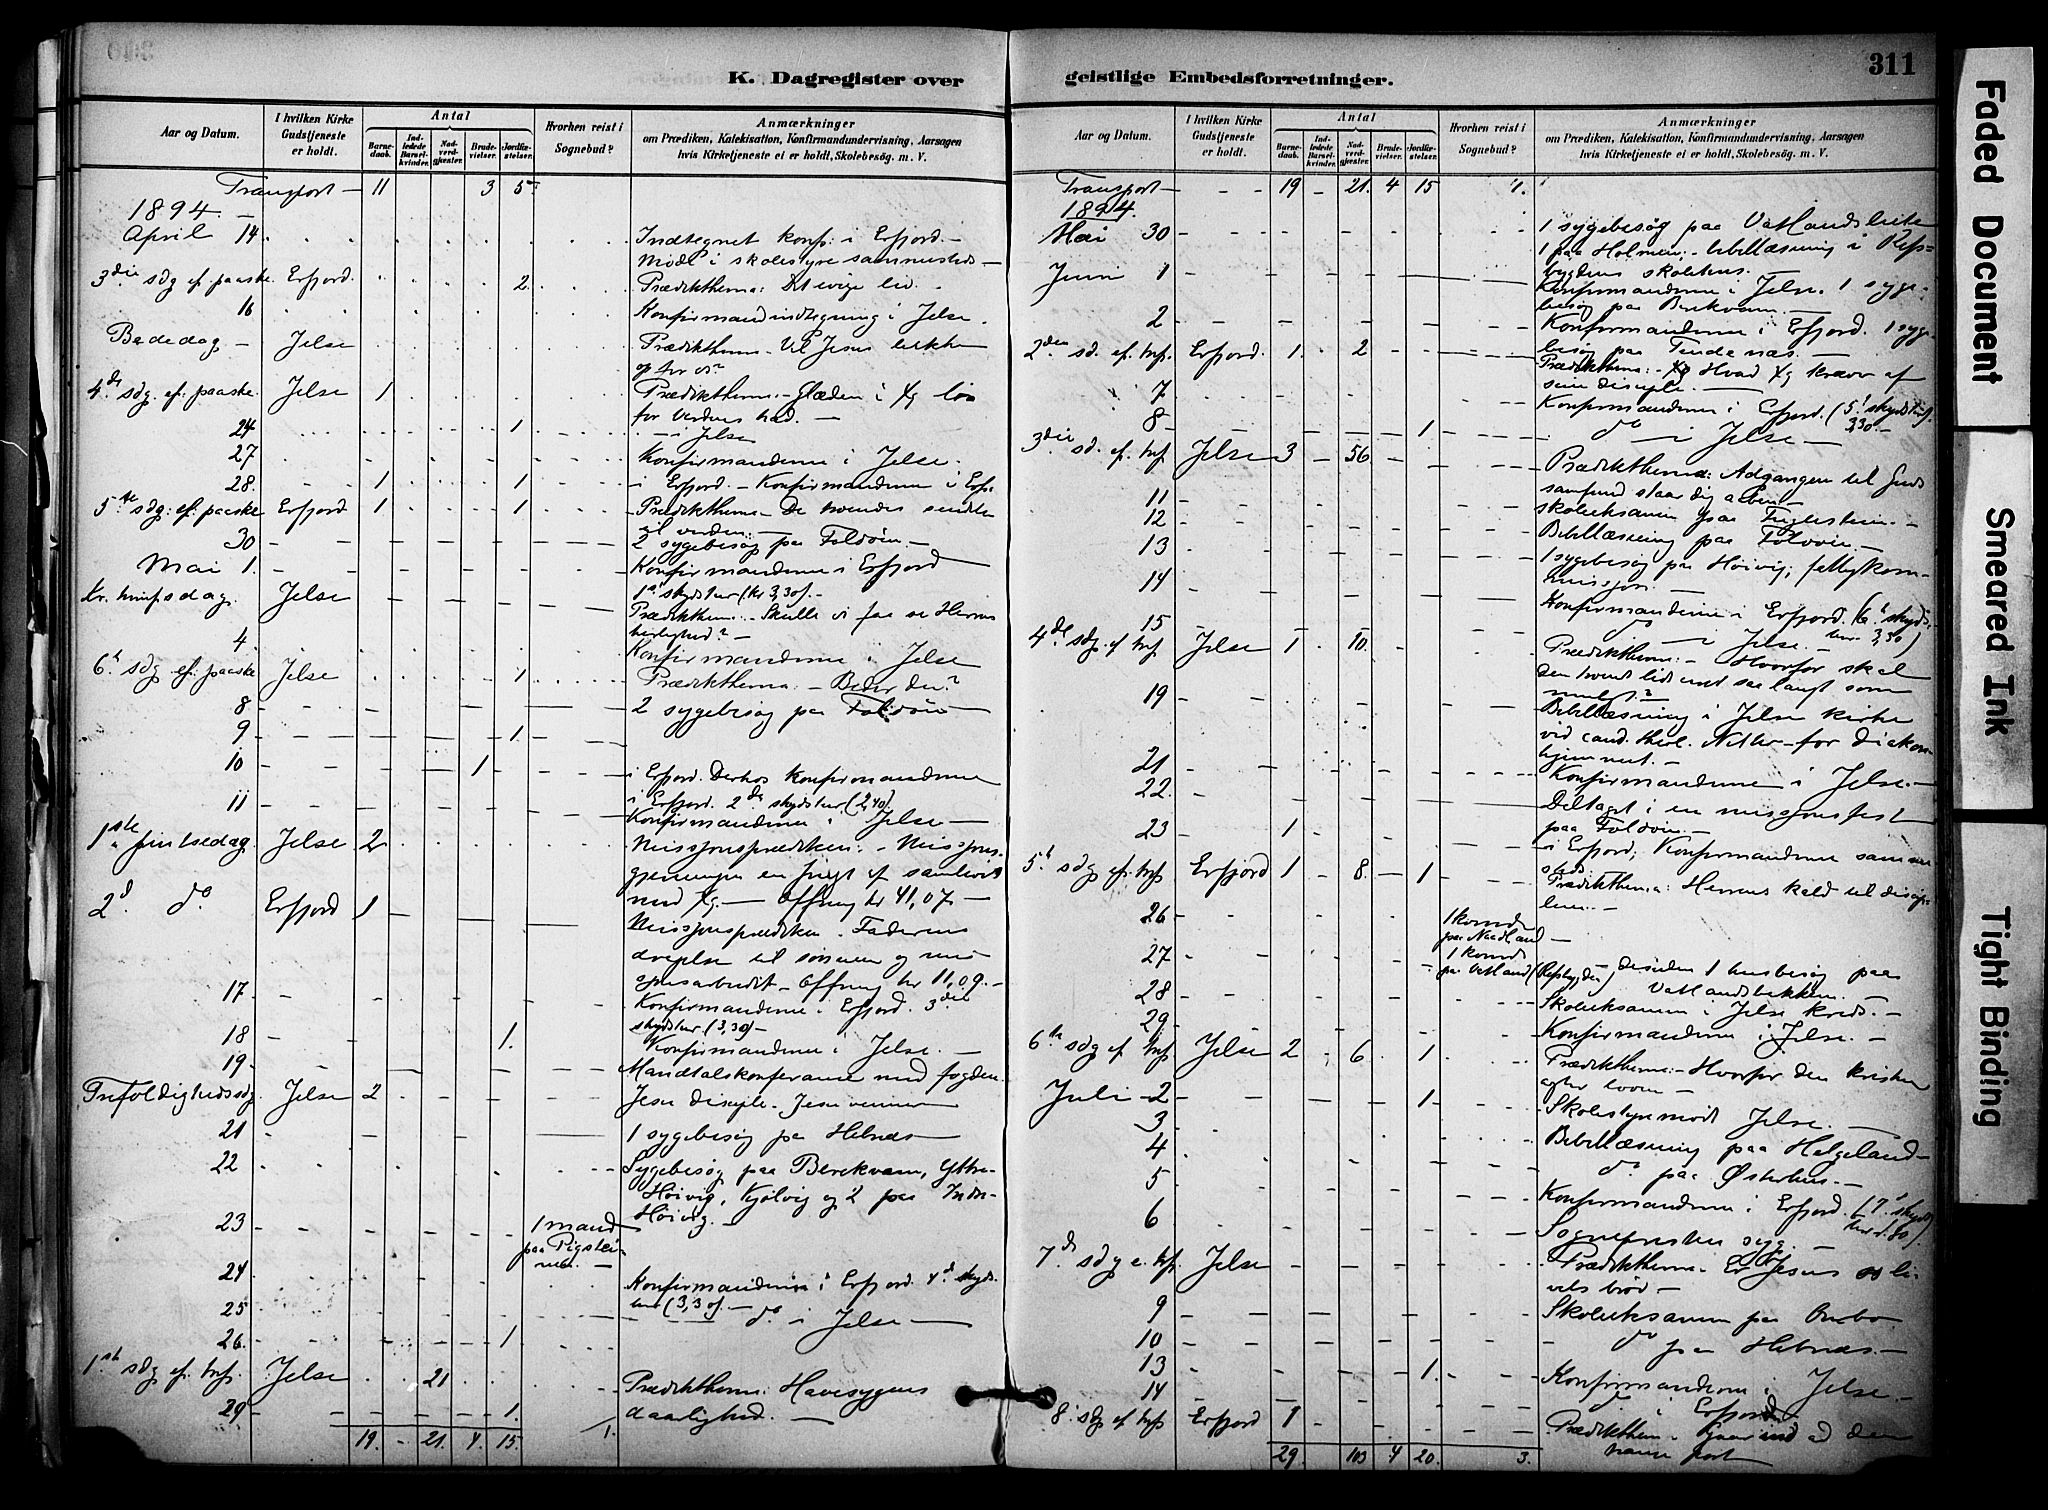 K. Dagregister over
Aar og Datum.
I hvilken Kirke Gudstjeneste er holdt.
Antal
Barnedaab.
Indledede Barselkvinder.
Nadverdgjæster.
Brudevielser.
Jordfæstelser.
Hvorhen reist i Sognebud?
Anmærkninger
om Prædiken, Katekisation, Konfirmandundervisning, Aarsagen
hvis Kirketjeneste ei er holdt, Skolebesög. m. V.
Transport — 11 3 5
1894. —
April 14 Indtegnet konf. i Erfjord. —
Møde i skolestyre sammesteds —
3die sdg ef. paaske. Erfjord. 2. Prædikthema: Det evige liv. —
16 Konfirmandindtegning i Jelse.
Bededag — Jelse Prædikthema — Vil Jesus lukke
op for os?
4de sdg. ef. paaske. Jelse 1 Prædikthema — Glæden i Xg
for verdens had. —
24 1 — i Jelse
27 Konfirmanderne i Jelse.
28. 1 1 i Erfjord. — Konfirmanderne i Erfj.
5te sdg. ef. paaske Erfjord 1 1 Prædikthema — De troendes
30 2 sygebesøg paa Foldøen. —
Mai 1. Konfirmanderne i Erfjord
1ste skydstur (kr 3,30). —
Kr. himfsdag. Jelse Prædikthema — Skulle vi faa se Herrens
herlighed? —
4 Konfirmanderne i Jelse
6te sdg ef. paaske Jelse 1 Prædikthema: — Beder du?
8 2 sygebesøg paa Foldøen
9 1.
10 1 i Erfjord. Derhos konfirmanderne
i Erfjord. 2den skydstur (2,40).
11 Konfirmanderne i Jelse —
1ste pintsedag Jelse 2 Missjonsprædiken. — Missjons-
gjerningen en frugt af samlivet
med Xg. — Offring kr 41,07 —
2d. do Erfjord 1 Missjonsprædiken. Faderens
til sønnen og mis-
sjonsarbeidet — Offring kr 11,09. —
17 Konfirmanderne i Erfjord. 3die
skydstur (3,30) —
18 1. Konfirmanderne i Jelse. —
19. Mandtalskonferanse med fogden.
Trefoldighedssdg. Jelse 2 Jesu disciple — Jesu venner
21 1 sygebesøg paa Hebnæs —
22 Sygebesøg paa Berekvam, Yttre-
Høivig, Kjølvig og 2 paa Indre-
Høivig. —
23 1 mand
paa Pigstei-
nen. —
24 Konfirmanderne i Erfjord. 4de skyds-
tur (3,30). —
25 do i Jelse —
26. 1
1ste sdg ef. tref. Jelse 21 Prædikthema: Havesygens
29 1. daarlighed. —
19. — 21. 4. 15. 1.
geistlige Embedsforretninger.
311
Aar og Datum.
I hvilken Kirke Gudstjeneste er holdt.
Antal
Barnedaab.
Indledede Barselkvinder.
Nadverdgjæster.
Brudevielser.
Jordfæstelser.
Hvorhen reist i Sognebud?
Anmærkninger
om Prædiken, Katekisation, Konfirmandundervisning, Aarsagen
hvis Kirketjeneste ei er holdt, Skolebesög. m. V.
Transport — 19 — 21. 4 15 1.
1894.
Mai 30 1 sygebesøg paa Vatlandsbække
1 paa Holmen; — bibellæsning i Reps-
bygdens skolehus.
Juni 1 Konfirmanderne i Jelse. 1 syge-
besøg paa Berekvam. —
2 Konfirmanderne i Erfjord. 1 syge-
besøg paa Tendenæs. —
2den sd. ef. tref. Erfjord. 1. 2 Prædikthema: — Hvad Xg kræver af
sine disciple. —
7 Konfirmanderne i Erfjord. (5te skydstur).
3,30. —
8 1 do — i Jelse —
3die sd. ef. tref Jelse 3 — 56 Prædikthema: Adgangen til Guds
samfund staar dig aaben —
11 skoleeksamen paa Fuglestein. —
12 Bibellæsning paa Foldøen —
13 1 sygebesøg paa Høivig; fattigkom-
missjon. —
14 Konfirmanderne i Erfjord. (6te skyds-
tur 3,30)
15 do — i Jelse. —
4de sdg. ef tref Jelse 1 10. Prædikthema: — Hvorfor skal
19 Bibellæsning i Jelse kirke
ved cand. theol. for diakon-
hjemmet. —
21 Konfirmanderne i Jelse. —
22. Deltaget i en missjonsfest
paa Foldøen —
23 1 i Erfjord; Konfirmanderne sammen-
steds
5te sdg ef. tref Erfjord 1 — 8. — 1 Prædikthema: Herrens kald til disip-
lene. —
26 1 kvinde
paa Nadland —
27 1 kvinde
paa Vatland (Repsbygden) — desuden 1 husbesøg paa
Vatlandsbækken. —
28 Skoleeksamen i Jelse kreds. —
29 Konfirmanderne i Jelse. —
6te sdg ef. tref Jelse 2 6. 1 Prædikthema: — Hvorfor den kristne
loven —
Juli 2 1. Skolestyremøde Jelse. —
3. Bibellæsning paa Helgeland —
4 do paa Østerhus. —
5 Konfirmanderne i Erfjord. (7de skyds-
6 Sognepresten syg. —
7de sdg e. tref. Jelse Prædikthema — Er Jesus os li-
vets brød —
9 Skoleeksamen paa Ombo
10 — do paa Hebnæs. —
13 1. Konfirmanderne i Jelse. —
14 do i Erfjord
8. sdg ef tref Erfjord 1 Prædikthem. Gaar ind ad den
trange port
29. 103 4 20. 3.
Faded Document
Smeared Ink
Tight Binding